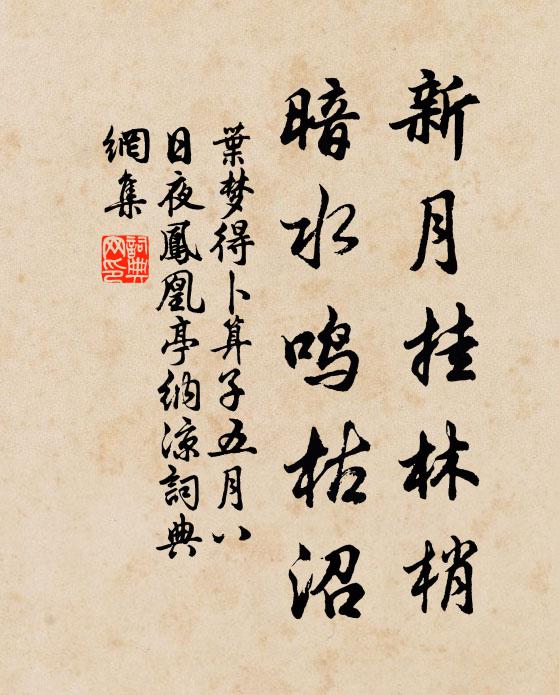 新月挂林梢
暗水鸣枯沼
葉梦得卜算子五月八
日夜鳳凰亭纳涼詞典
網集
詞典
网印